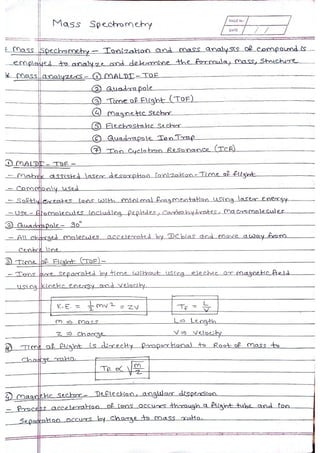 Mass Spectrometry
PAGE No.
DATE / /
1. Mass Spectrometry - Ionization and mass analysis of compound is
employed to analyze and determine the formula, mass, structure
* Mass analyzers - ① MALDI - TOF
② Quadrapole
③ Time of Flight (TOF)
④ Magnetic Sector
⑤ Electrostatic Sector
⑥ Quadrapole Ion Trap
⑦ Ion Cyclotron Resonance (ICR)
① MALDI - TOF -
- Matrix assisted laser desorption Ionization - Time of flight
- Commonly used
- Softly creates ions with minimal fragmentation using laser energy
- Use - Biomolecules including peptides, Carbohydrates, Macromolecules
② Quadrapole - 3D
- All charged molecules accelerated by DC bias and move away from
centre line
③ Time of Flight (TOF) -
- Ions are separated by time without using electric or magnetic field
using kinetic energy and velocity
K.E = 1/2 mv² = ZV
TF = L/V
m ⇒ mass
L ⇒ Length
Z ⇒ charge
V ⇒ velocity
Time of flight is directly proportional to Root of mass to
Charge ratio
TF ∝ √m/z
Magnetic Sector - Deflection, angular dispersion
- Process acceleration of ions occurs through a flight tube and Ion
Separation occurs by Charge to mass ratio.